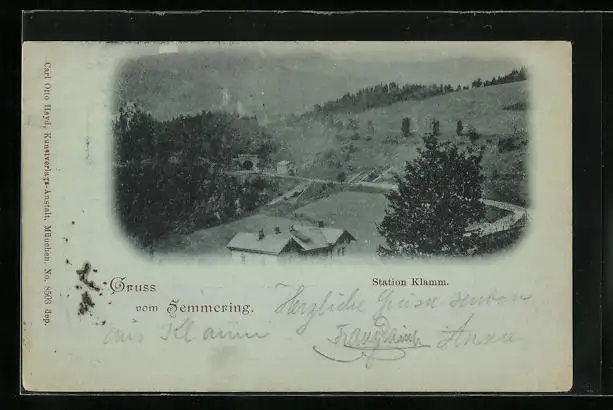 Carl Otto Hayd, Kunstverlags-Anstalt, München. No. 8503 dep.
Station Klamm.
Gruss
vom Semmering.
Herzliche Grüsse senden
aus Klamm
Anna